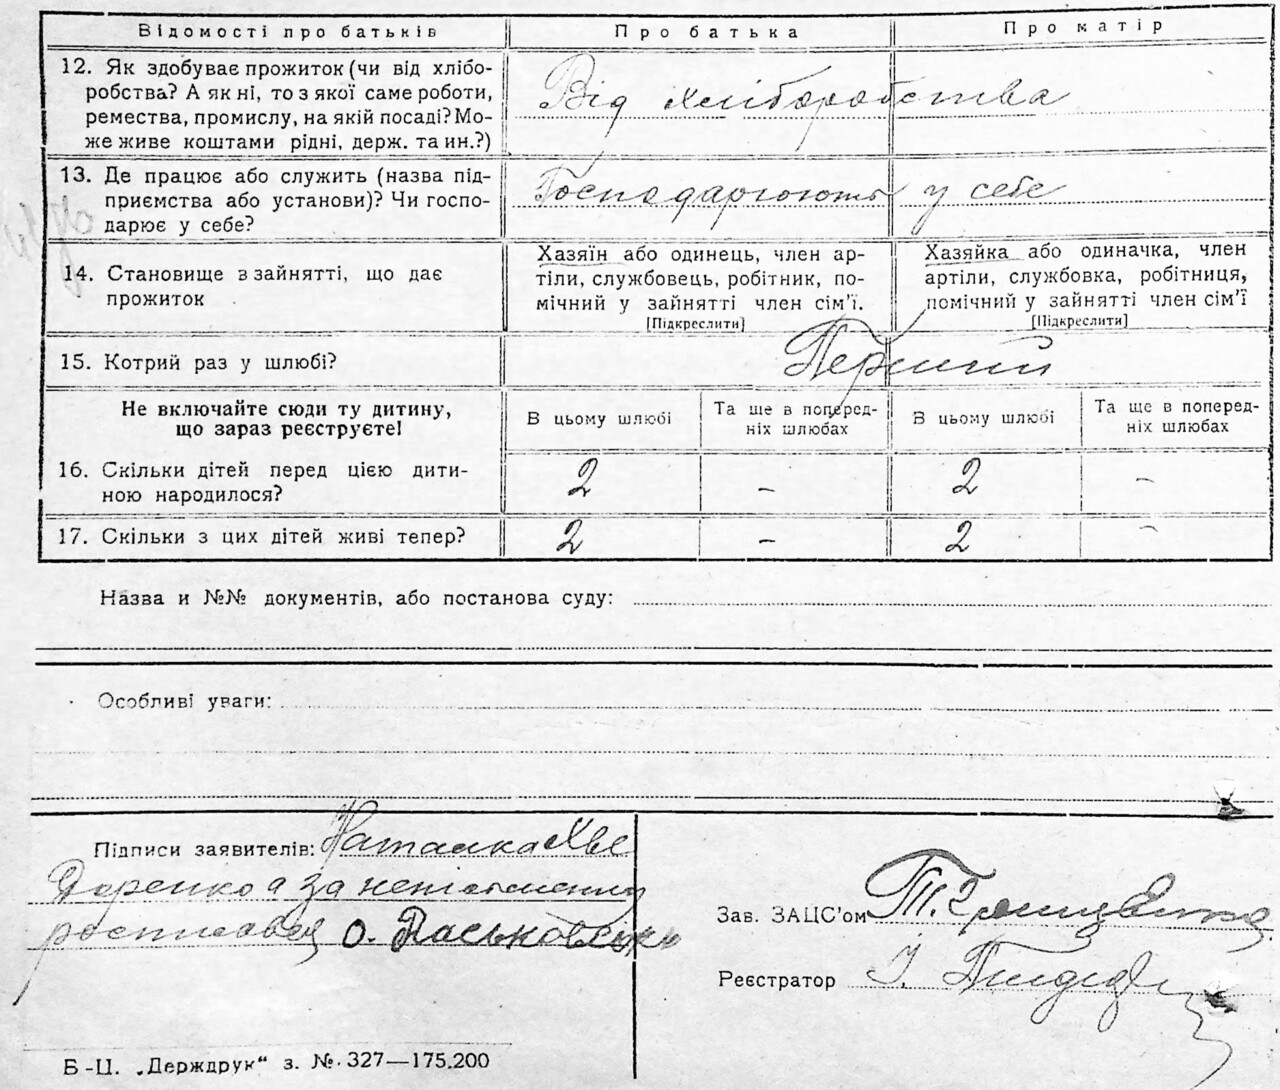 Відомості про батьків
Про батька
Про матір
12. Як здобуває прожиток (чи від хлібо-
робства? А як ні, то з якої саме роботи,
ремества, промислу, на якій посаді? Мо-
же живе коштами рідні, держ. та ин.?)
Від хліборобства
13. Де працює або служить (назва під-
приємства або установи)? Чи госпо-
дарює у себе?
Господарюють у себе
14. Становище в зайнятті, що дає
прожиток
Хазяїн або одинець, член ар-
тіли, службовець, робітник, по-
мічний у зайнятті член сім'ї.
[Підкреслити]
Хазяйка або одиначка, член
артіли, службовка, робітниця,
помічний у зайнятті член сім'ї
[Підкреслити]
15. Котрий раз у шлюбі?
Перший
Не включайте сюди ту дитину,
що зараз реєструєте!
В цьому шлюбі
Та ще в поперед-
ніх шлюбах
В цьому шлюбі
Та ще в поперед-
ніх шлюбах
16. Скільки дітей перед цією дити-
ною народилося?
2 – 2 –
17. Скільки з цих дітей живі тепер?
2 – 2 –
Назва и №№ документів, або постанова суду:
Особливі уваги:
Підписи заявителів: Наталка Хве
даренко а за неписьменну
росписався О.
Зав. ЗАЦС'ом
Реєстратор І.
Б-Ц. „Держдрук" з. №. 327—175.200